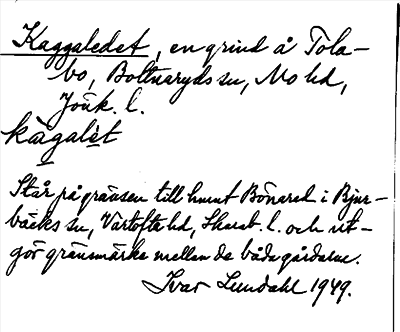 Kaggaledet, en grind å Tola-
bo, Bottnaryds sn, Mo hd,
Jönk. l.
kagalèt
Står på gränsen till hmnt Bönared i Bjur-
bäcks sn, Vartofta hd, Skarab. l. och ut-
gör gränsmärke mellan de båda gårdarne.
Ivar Lundahl 1949.